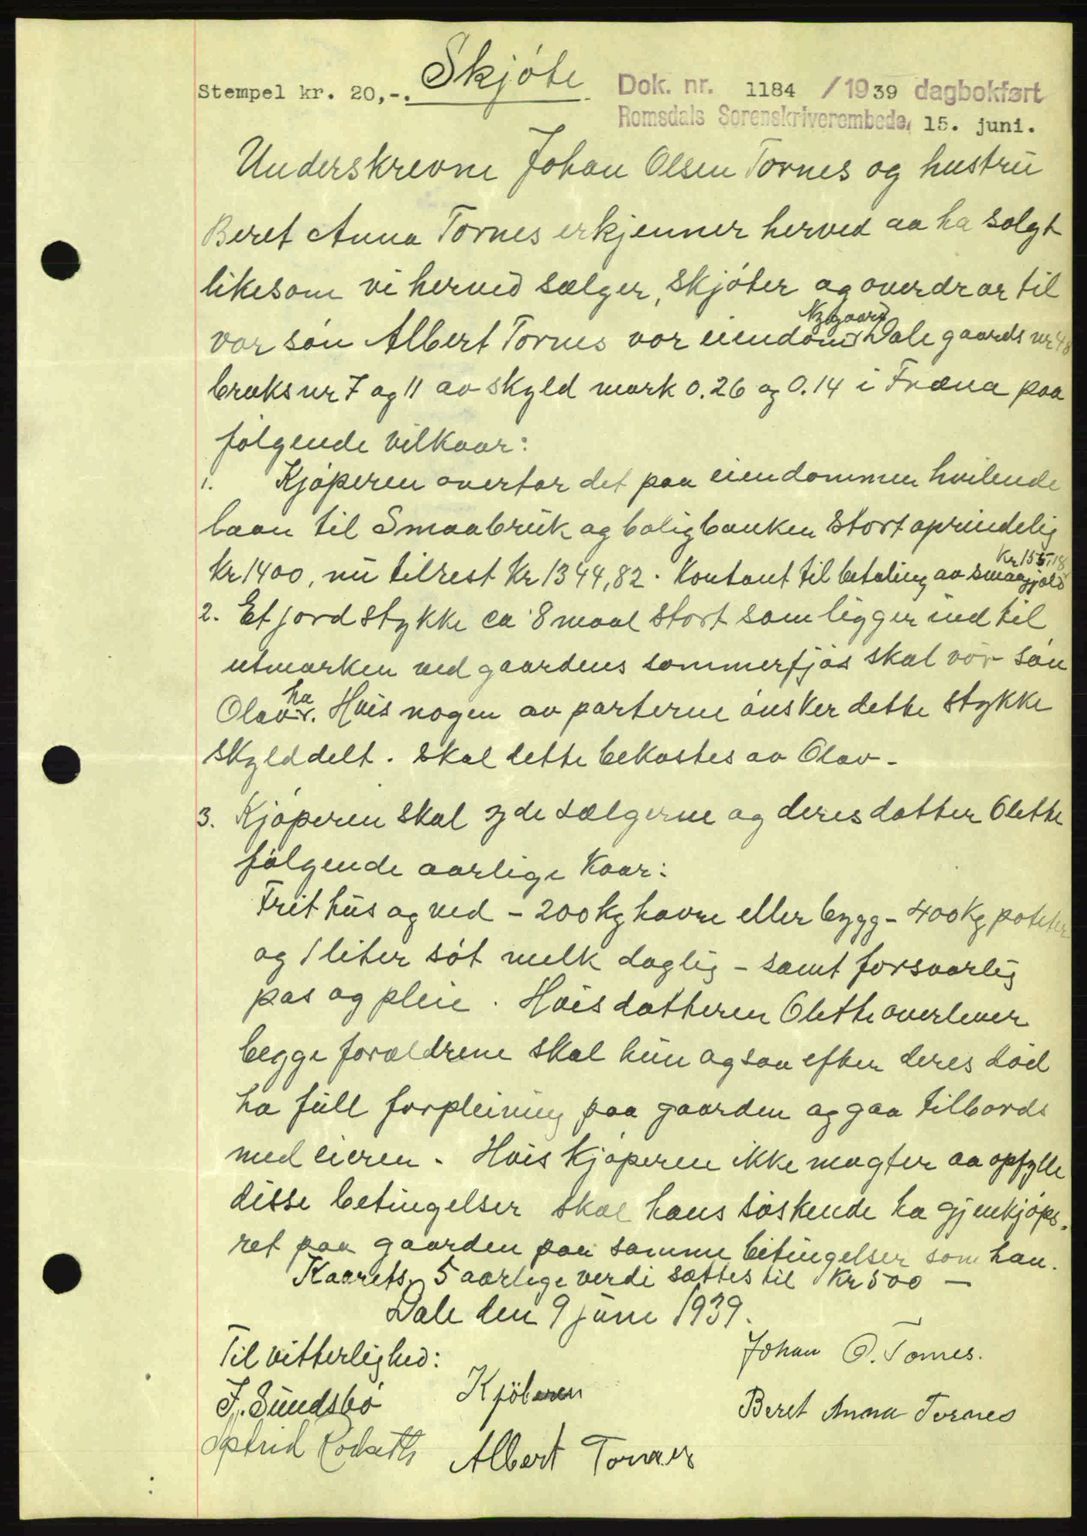 Skjóte
Stempel kr. 20,-. Dok. nr. 1184 /1939 dagbokført
Romsdals Sorenskriverembede, 15. juni.
Underskrevne Johan Olsen Tornes og hustru
Beret Anna Tornes erkjenner herved aa ha solgt
likesom vi herved sælger, skjóter og overdrar til
Nygaard
vor són Albert Tornes vor eiendom Dale gaards nr 48
bruksnr 7 og 11 av skyld mark 0.26 og 0.14 i Fræna paa
fólgende vilkaar:
1. Kjóperen overtar det paa eiendommen hvilende
laan til Smaabruk og boligbanken stort oprindelig
kr 1400, nu tilrest Kr 1344,82. Kontant til betaling av smaagjæld
2. Et jordstykke ca 8 maal stort som ligger ind til
utmarken ved gaardens sommerfjós skal vor són
ha
Olav. Hvis nogen av parterne ónsker dette stykke
skylddelt. skal dette bekostes av Olav.
3. Kjóperen skal yde sælgerne og deres datter Olette
fólgende aarlige Kaar:
Frit hus og ved - 200 kg havre eller bygg - 400 Kg poteter
og 1 liter sót melk daglig - samt forsvarlig
pas og pleie. Hvis datteren Olette overlever
begge forældrene skal hun ogsaa efter deres dód
ha full forpleining paa gaarden og gaa tilbords
med eieren. Hvis kjóperen ikke magter aa opfylle
disse betingelser skal hans sóskende ha gjenkjóps-
ret paa gaarden paa samme betingelser som han.
Kaarets 5 aarlige verdi sættes til Kr 500 —
Dale den 9 juni 1939.
Til vitterlighed: Johan O. Tornes.
J. Sundsbó Kjöberen Beret Anna Tornes
Albert Tornes